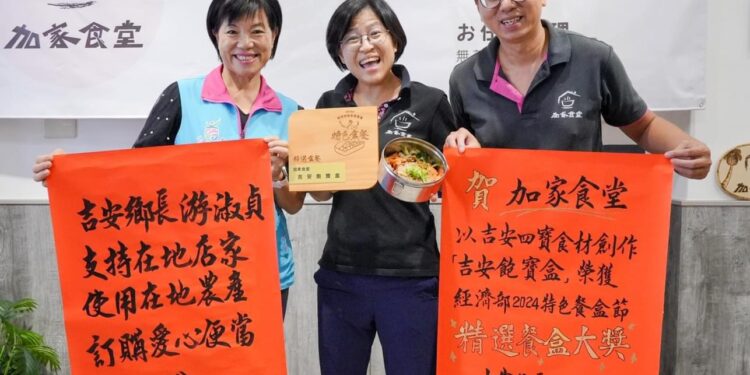 加家食堂
特色餐盒
精選餐盒
吉安飽寶盒
加家食堂
吉安鄉長游淑貞
支持在地店家
使用在地農產
訂購愛心便當
賀 加家食堂
以吉安四寶食材創作
「吉安飽寶盒」榮獲
經濟部2024特色餐盒節
精選餐盒大獎